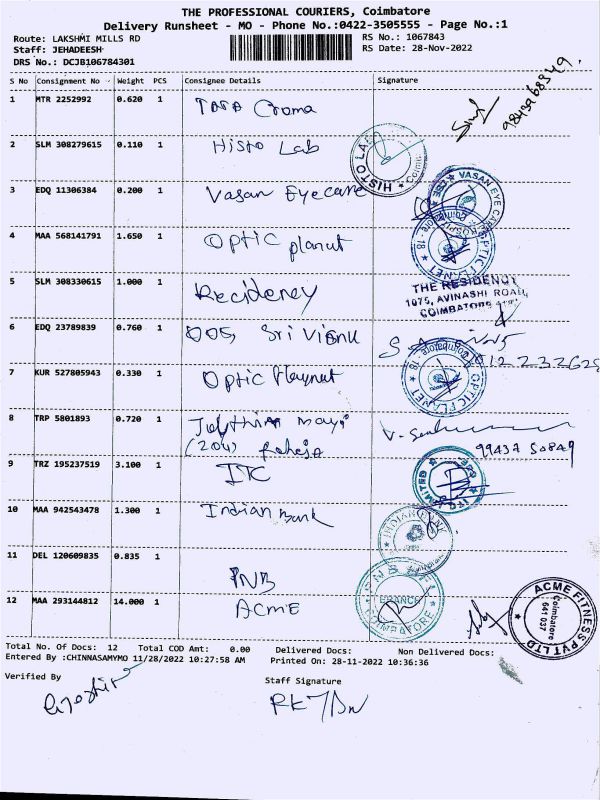 THE PROFESSIONAL COURIERS, Coimbatore
Delivery Runsheet - MO - Phone No.:0422-3505555 - Page No.:1
Route: LAKSHMI MILLS RD
Staff: JEHADEESH
DRS No.: DCJB106784301
RS No.: 1067843
RS Date: 28-Nov-2022
S No Consignment No Weight PCS Consignee Details Signature
1 MTR 2252992 0.620 1 TATA Croma
9843968349
2 SLM 308279615 0.110 1 Histo Lab
HISTO LAB
3 EDQ 11306384 0.200 1 Vasan Eyecare
VASAN EYE CARE
4 MAA 568141791 1.650 1 Optic planut
OPTIC PLANET
5 SLM 308330615 1.000 1 Recideney
THE RESIDENCY
1075, AVINASHI ROAD,
COIMBATORE
6 EDQ 23789839 0.760 1 005, Sri Vishnu
7 KUR 527805943 0.330 1 Optic Playnut
OPTIC PLANET
8 TRP 5801893 0.720 1
(204) Raheja
99437 50849
9 TRZ 195237519 3.100 1 ITC
LIMITED
10 MAA 942543478 1.300 1 Indian Bank
INDIAN BANK
11 DEL 120609835 0.835 1 PNB
COIMBATORE
12 MAA 293144812 14.000 1 ACME
ACME FITNESS PVT LTD
Coimbatore
641 037
Total No. Of Docs: 12 Total COD Amt: 0.00 Delivered Docs: Non Delivered Docs:
Entered By :CHINNASAMYMO 11/28/2022 10:27:58 AM Printed On: 28-11-2022 10:36:36
Verified By Staff Signature